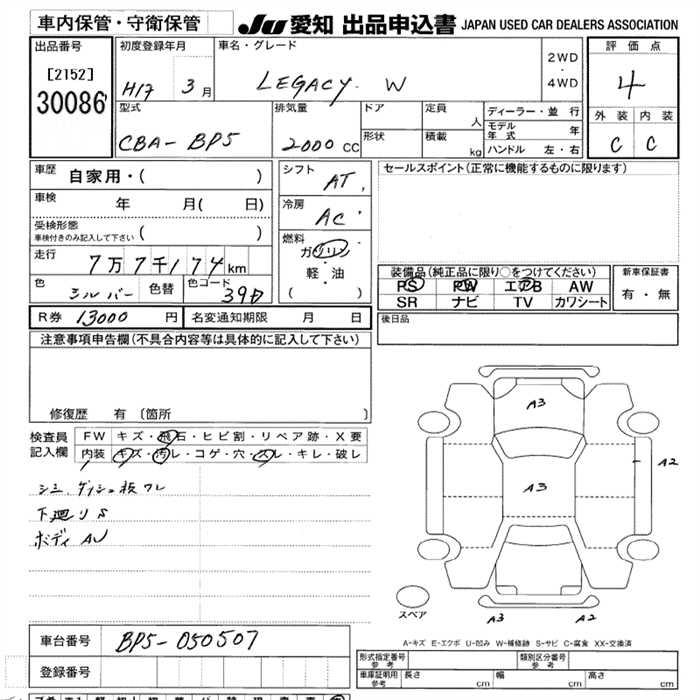 車内保管・守衛保管
JU 愛知 出品申込書 JAPAN USED CAR DEALERS ASSOCIATION
出品番号
[2152]
30086
初度登録年月
H17 3月
車名・グレード
LEGACY W
2WD
・
4WD
評価点
4
外装 内装
C C
型式
CBA-BP5
排気量
2000 CC
ドア
形状
定員
人
積載
kg
ディーラー・並 行
モデル年式 年
ハンドル 左・右
車歴
自家用・( )
車検
年 月( 日)
受検形態
車検付きのみ記入して下さい ( )
走行
7万7千174km
色
シルバー
色替
色コード
39D
シフト
AT
冷房
AC
燃料
ガソリン
・
軽・油
( )
セールスポイント(正常に機能するものに限ります)
装備品(純正品に限り○をつけてください)
PS PW エアB AW
SR ナビ TV カワシート
新車保証書
有・無
R券 13000 円 名変通知期限 月 日
後日品
注意事項申告欄(不具合内容等は具体的に記入して下さい)
修復歴 有 〔箇所 〕
検査員
記入欄
FW キズ・飛石・ヒビ割・リペア跡・X要
内装 キズ・汚レ・コゲ・穴・スレ・キレ・破レ
シミ、ダッシュ板ワレ
下廻りS
ボディAU
A3
A2
A3
スペア
A3 A2
A-キズ E-エクボ U-凹み W-補修跡 S-サビ C-腐食 XX-交換済
車台番号 BP5-050507
登録番号
形式指定番号
参考
類別区分番号
参考
車庫証明用
参考
長さ cm 幅 cm 高さ cm